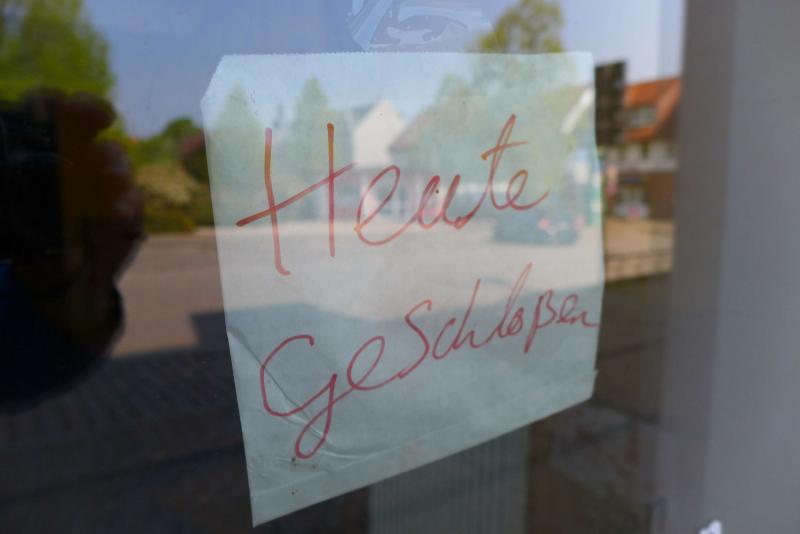 Heute
Geschloßen